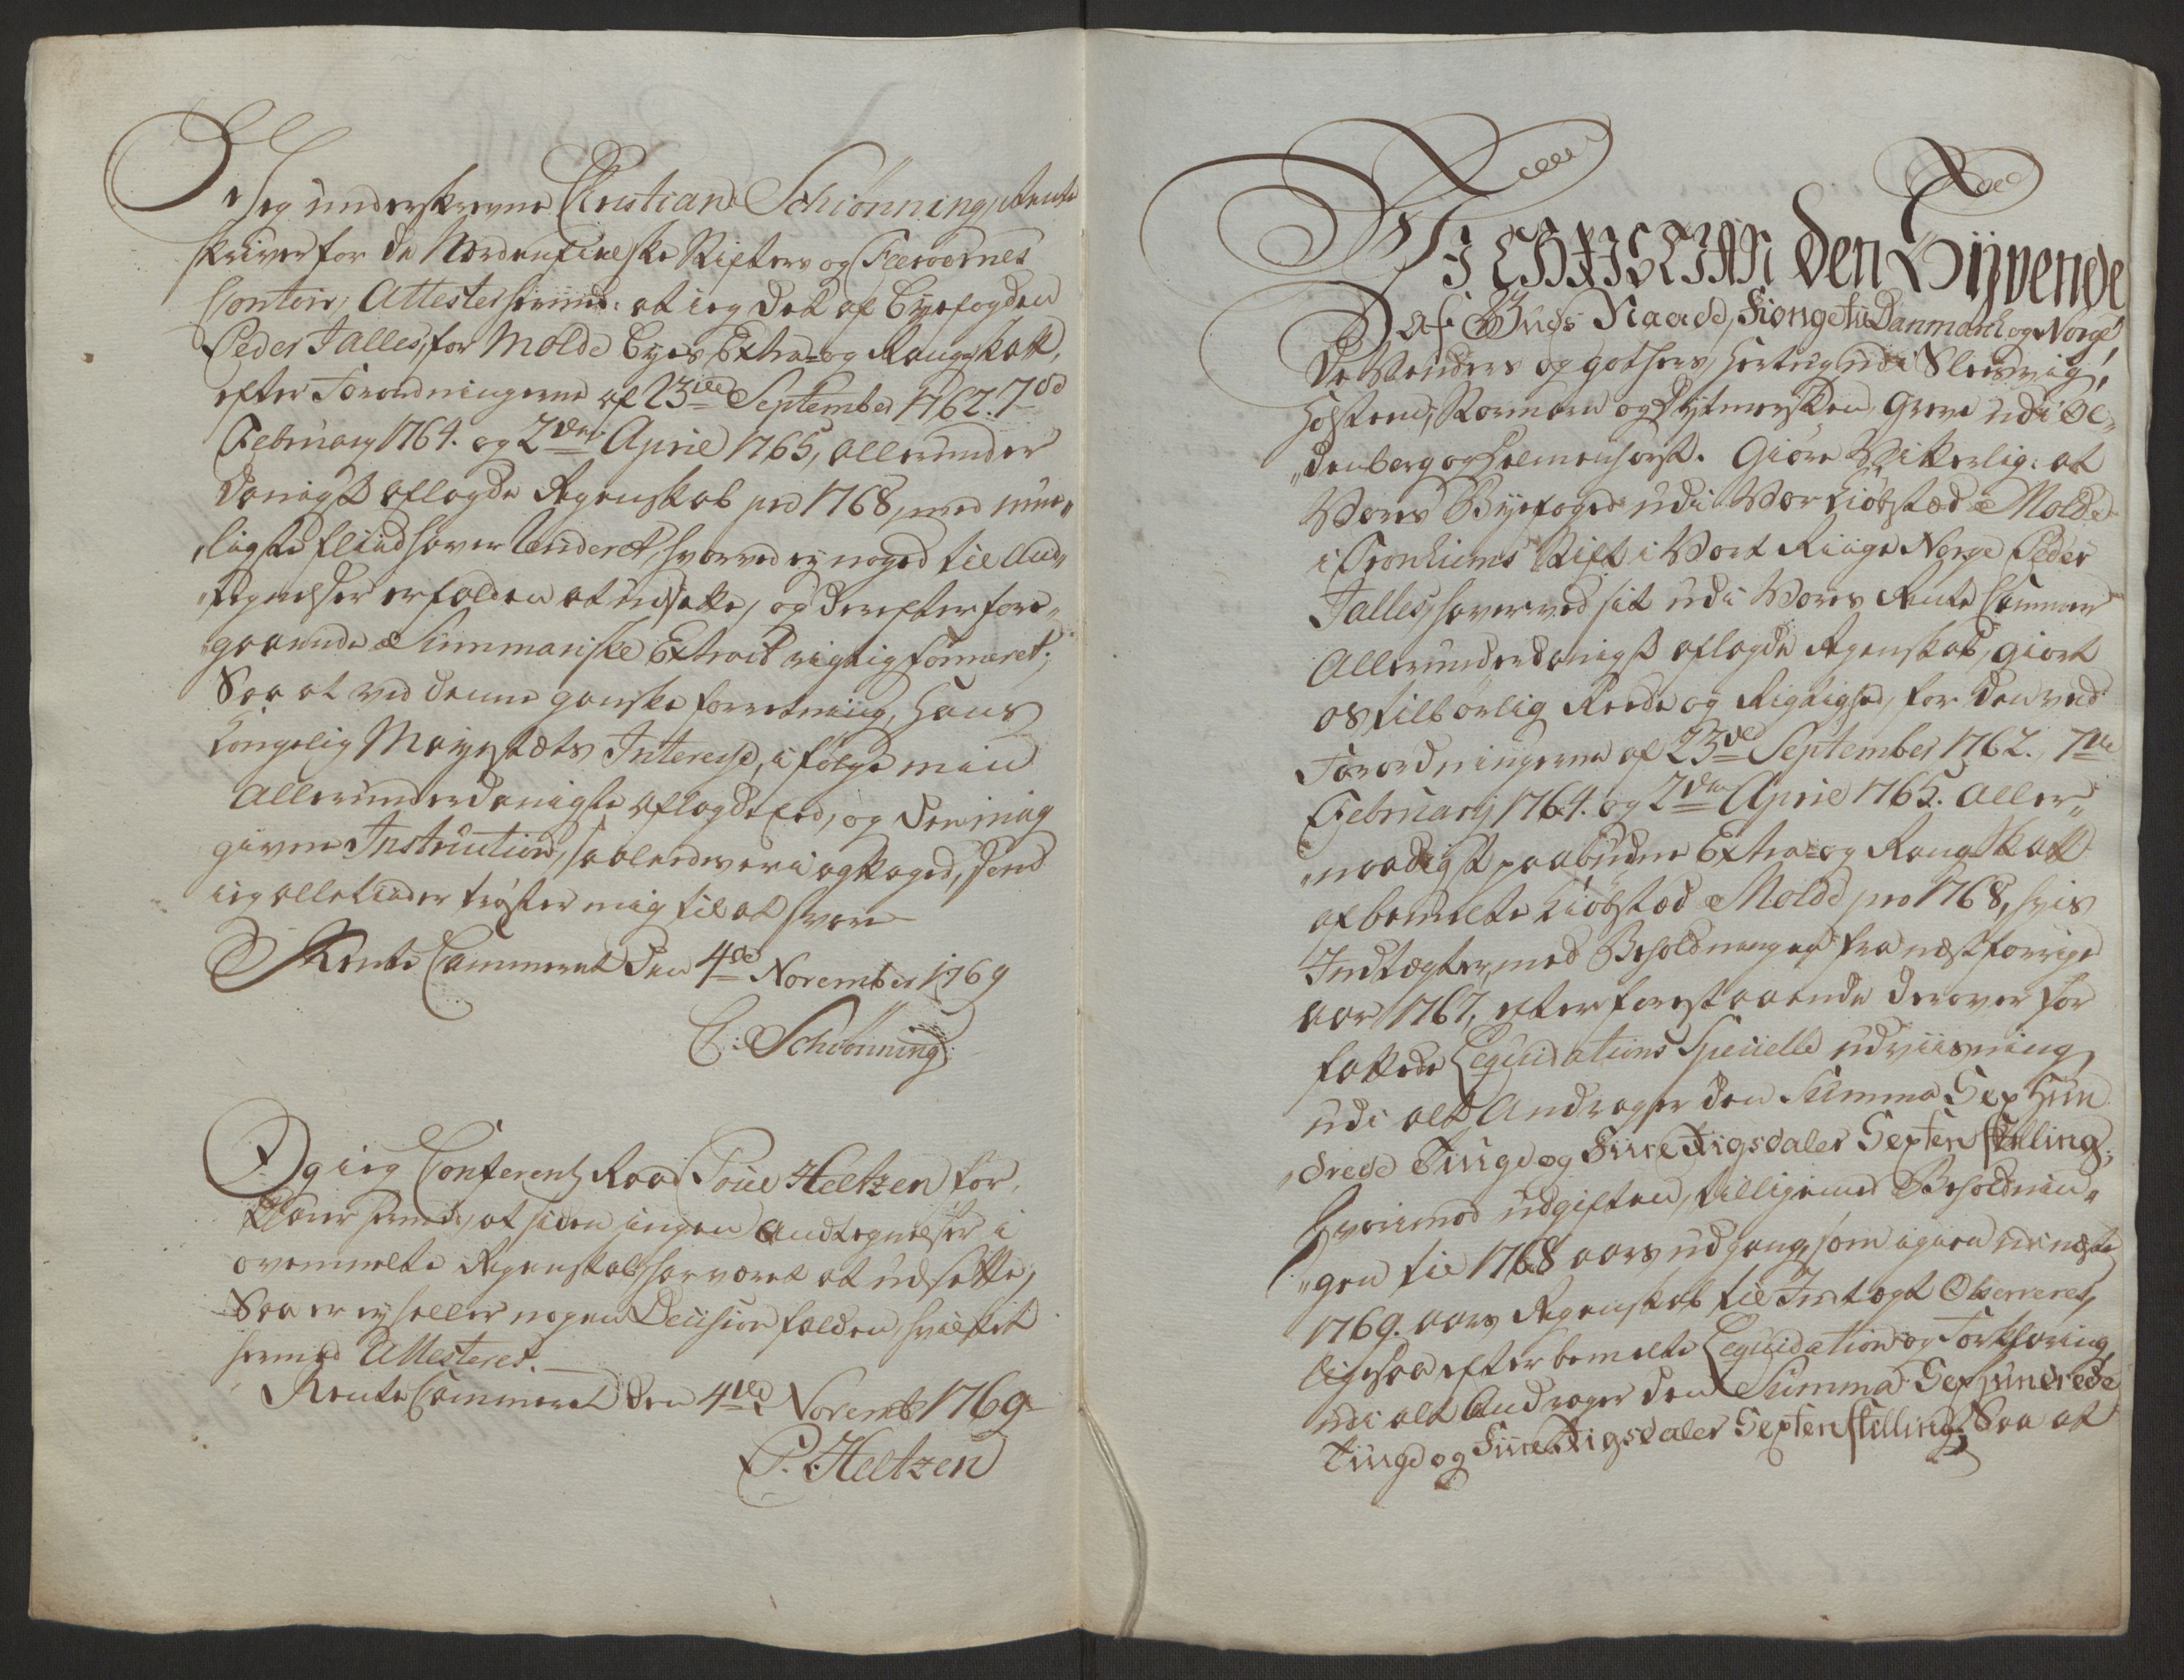 Jeg underskrevne Christian Schiönning, Rente
skriver for de Nordenfieldske Stifters og Færöernes
Contoir, Attesterer hermed: at ieg det af Byefogden
Peder Dalles, for Molde Byes Extra- og Rangskatt,
efter Forordningerne af 23de September 1762. 7de
February 1764. og 2den April 1765, allerunder
danigst aflagde Regenskab pro 1768, med mue„
„ligste fliid haver Revideret, hvorved ey noget til And„
„tegnelser er falden at udsætte, og derefter fore„
„gaaende Summariske Extract rigtig formeret;
Saa at ved denne ganske forretning, Hans
Kongelig Mayestæts Interesse, i fölge min
Allerunderdanigste aflagde Eed, og den mig
givne Instruction, saaledes er i agttaged, som
ieg alletiider tröster mig til at svare
Rente Cammeret den 4de November 1769
C: Schiönning
Og ieg Conferentz Raad Poul Heltzen for„
klarer hermed, at siden ingen Andtegnelser i
ovenmelte Regenskab har været at udsætte,
Saa er ey heller nogen Decision falden, hvilket
hermed Attesteres.
Rente Cammeret den 4de Novembr 1769
P. Heltzen
Vi CHRISTIAN den Syvende
Af Guds Naade, Konge til Danmark og Norge,
De Venders og Gothers, Hertug udi Slesvig,
Holsten, Stormarn og Dytmersken, Greve udi Ol„
„denborg og Delmenhorst. Giöre Vitterlig: at
Vores Byefoged udi Vor Kiöbstæd Molde
i Tronhiems Stift i Vort Riige Norge Peder
Dalles, haver ved sit udi Vores Rente Cammer
Allerunderdanigst aflagde Regenskab, giort
os tilbörlig Reede og Rigtighed, for den ved
Forordningerne af 23de September 1762., 7de
February 1764. og 2den April 1765. aller„
„naadigst paabudne Extra- og Rang Skatt
af bemelte Kiöbstæd Molde pro 1768, hvis
Indtægter, med Beholdningen fra næstforrige
aar 1767, efter forestaaende derover for
fattede Liqvidations Specielle udviisning
udi alt Andrager den Summa Sex Hun
„drede Tiuge og Fiire Rigsdaler Sexten skilling;
Hvorimod udgiften, tilligemed Beholdnin„
„gen til 1768 aars udgang, som igien udi næste
1769. aars Regenskab til Indtægt Observeres,
ligesaa efter bemelte Liqvidation og Forklaring
udi alt Andrager den Summa Sex Hundrede
Tiuge og Fiire Rigsdaler Sexten skilling; Saa at